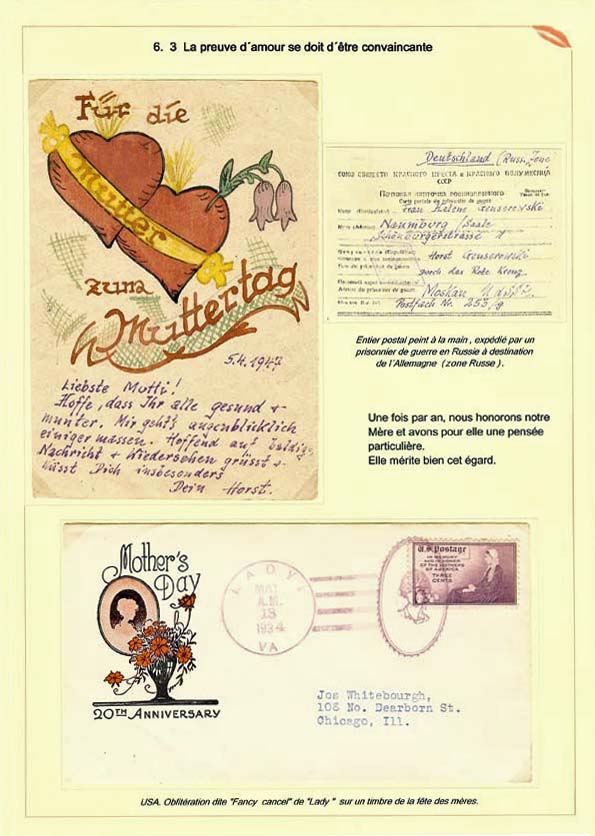 6. 3 La preuve d´amour se doit d´être convaincante
Für die
Mutter
zum
Muttertag
5.4.1947
Liebste Mutti!
Hoffe, dass Ihr alle gesund +
munter. Mir geht's augenblicklich
einigermassen. Hoffend auf baldige
Nachricht + Wiedersehen grüsst +
küsst Dich insbesonders
Dein Horst.
Deutschland (Russ. Zone
СОЮЗ ОБЩЕСТВ КРАСНОГО КРЕСТА и КРАСНОГО ПОЛУМЕСЯЦА
СССР
Почтовая карточка военнопленного
Carte postale du prisonnier de guerre
Frau Helene
Naumburg /Saale
Schönburgerstrasse
Horst
Durch das Rote Kreuz
Moskau
Postfach Nr. 253/
Entier postal peint à la main , expédié par un
prisonnier de guerre en Russie à destination
de l´Allemagne (zone Russe ).
Une fois par an, nous honorons notre
Mère et avons pour elle une pensée
particulière.
Elle mérite bien cet égard.
Mother's
Day
20TH ANNIVERSARY
LADY
MAY
A.M.
13
1934
VA
U.S. Postage
IN MEMORY
AND IN HONOR
OF THE MOTHERS
OF AMERICA
THREE
CENTS
Jos Whitebourgh,
108 No. Dearborn St.
Chicago, Ill.
USA. Oblitération dite "Fancy cancel" de "Lady " sur un timbre de la fête des mères.